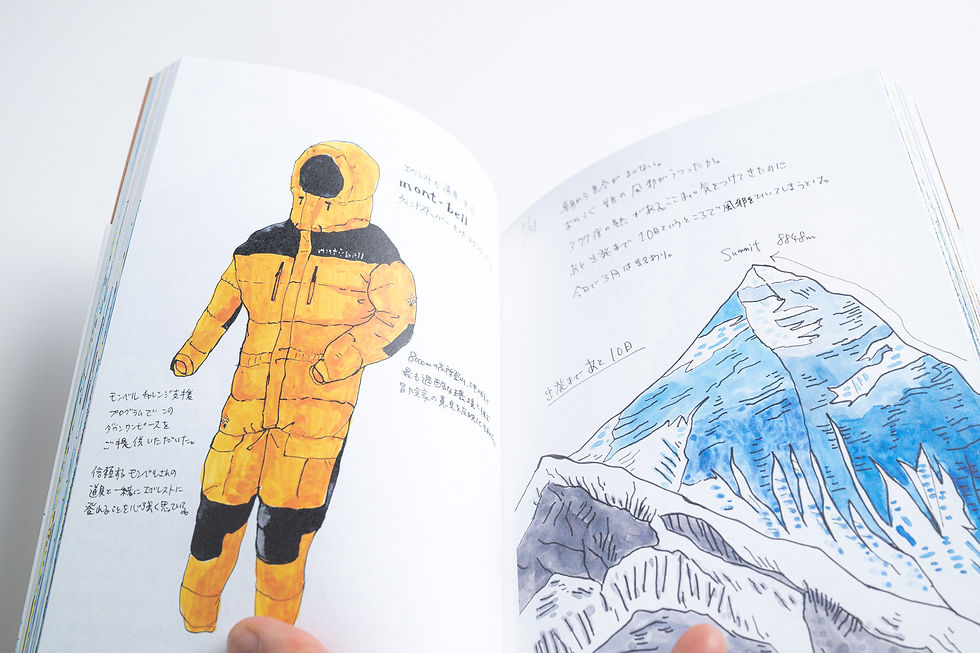 エベレストの道具 その
mont-bell
mont-bell
8000mの高所登山、
最も過酷な環境に挑む
冒険家の意見を反映した
モンベル チャレンジ支援
プログラムで この
ダウンワンピースを
ご提供いただいた。
信頼するモンベルさんの
道具と一緒にエベレストに
登れることを心強く思っている。
3/31
朝から具合がよくない。
おそらく 娘の 風邪がうつったか。
37.7度の熱がある。ここまで気をつけてきたのに
あと出発まで10日というところで風邪をひいてしまうとは。
今日で3月は終わり。
Summit 8848m
出発まであと10日